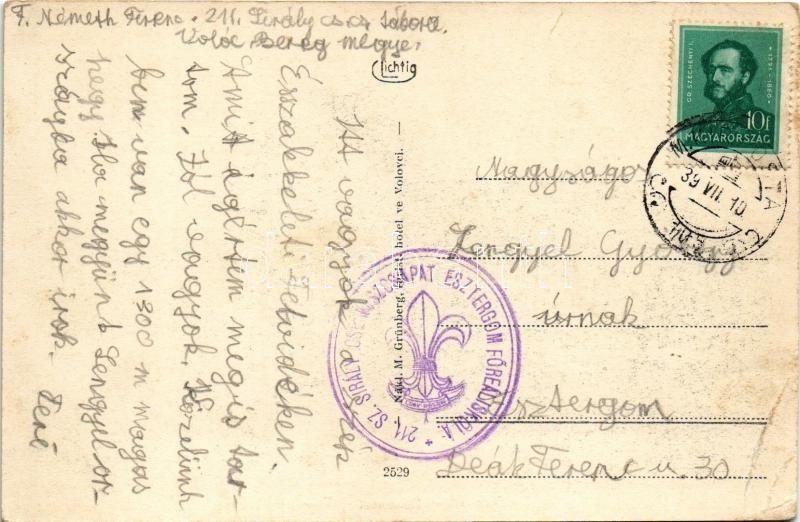 F. Németh Ferenc. 211. Sirály cs. cs. tábora.
Volóc Bereg megye.
Lichtig
Itt vagyok a szép
Északkeleti Felvidéken.
Amit ígértem meg is tar-
tom. Jól vagyok. Közelünk-
ben van egy 1300 m magas
hegy. Ha megyünk Lengyelor-
szágba akkor írok.
Feri
Nakl. M. Grünberg, hotel ve Volovci. —
2529
211. SZ. SIRÁLY CSERKÉSZCSAPAT ESZTERGOM FŐREÁLISKOLA
GR. SZÉCHENYI I.
1791-1860
10f
MAGYARORSZÁG
M. POSTA
39 VII. 10
Nagyságos
Lengyel György
úrnak
Esztergom
Deák Ferenc u. 30